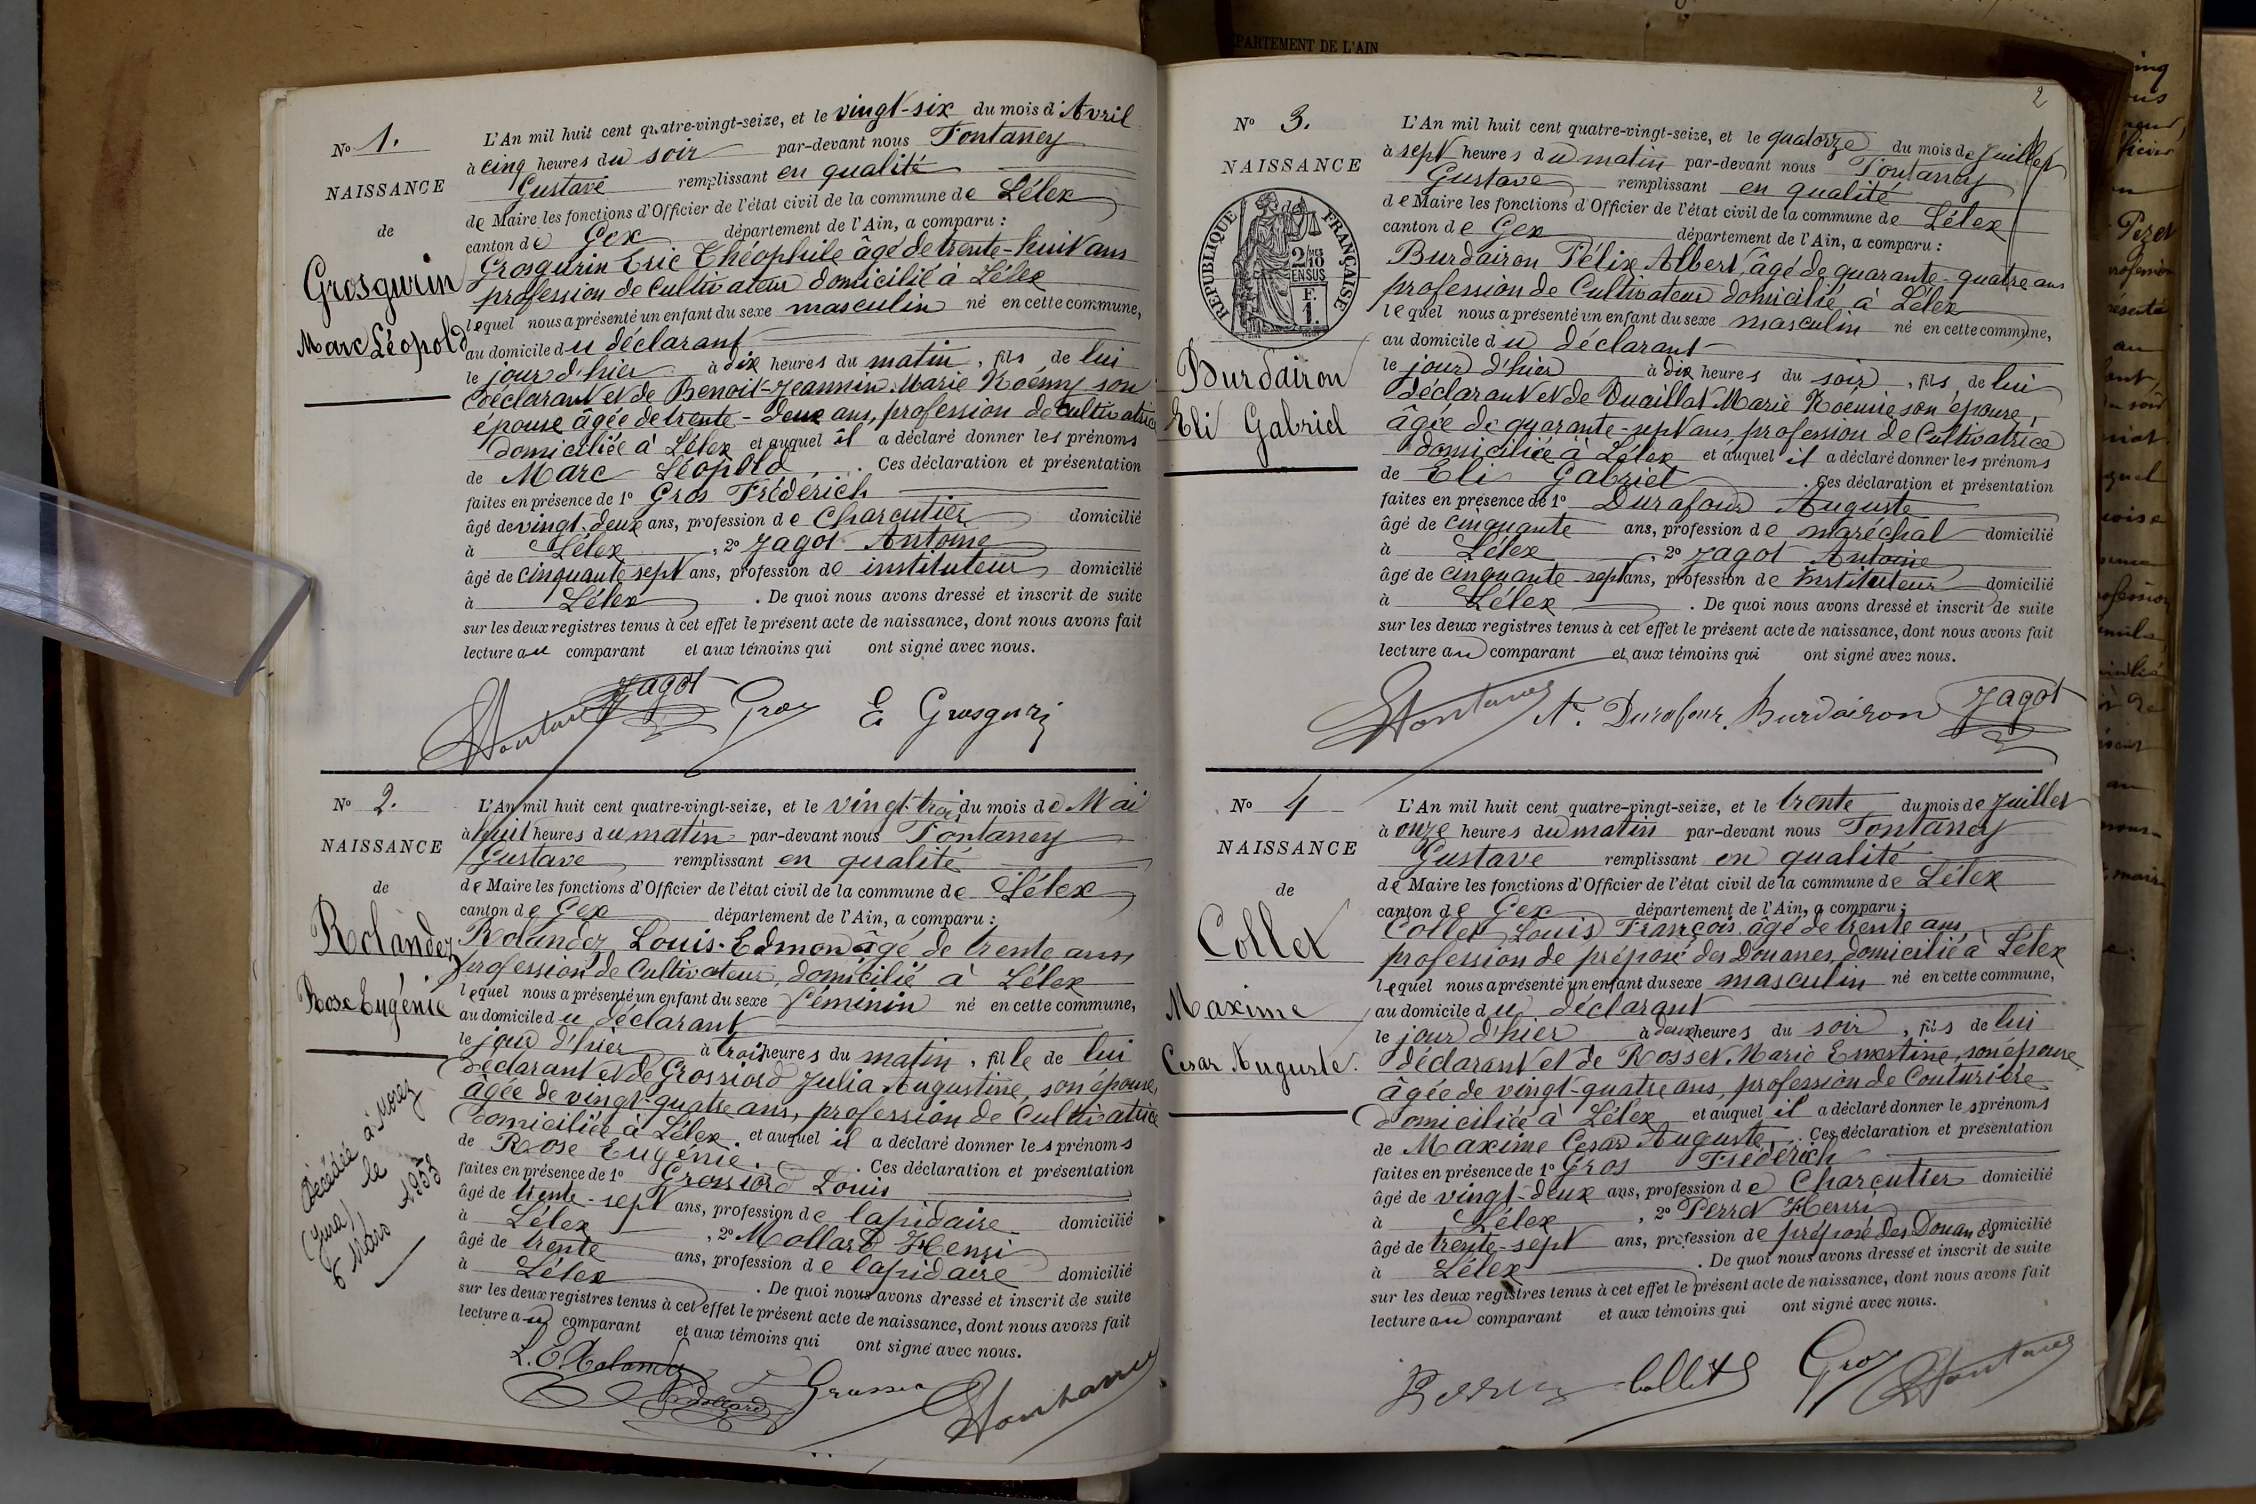 No 1.
NAISSANCE
de
Grosgurin
Marc Léopold
L'An mil huit cent quatre-vingt-seize, et le vingt-six du mois d'Avril
à cinq heures du soir par-devant nous Fontanney
Gustave remplissant en qualité
de Maire les fonctions d'Officier de l'état civil de la commune de Lélex
canton de Gex département de l'Ain, a comparu :
Grosgurin Eric Théophile âgé de trente-huit ans
profession de Cultivateur domicilié à Lélex
lequel nous a présenté un enfant du sexe masculin né en cette commune,
au domicile du déclarant
le jour d'hier à dix heures du matin, fils de lui
déclarant et de Benoit-Jeannin Marie Noémy son
épouse âgée de trente-deux ans, profession de Cultivatrice
domiciliée à Lélex et auquel il a déclaré donner les prénoms
de Marc Léopold. Ces déclaration et présentation
faites en présence de 1o Gros Frédérich
âgé de vingt-deux ans, profession de Charcutier domicilié
à Lélex, 2o Jagot Antoine
âgé de cinquante sept ans, profession de instituteur domicilié
à Lélex. De quoi nous avons dressé et inscrit de suite
sur les deux registres tenus à cet effet le présent acte de naissance, dont nous avons fait
lecture au comparant et aux témoins qui ont signé avec nous.
Fontanney Jagot Gros E Grosgurin
No 2.
NAISSANCE
de
Rolandez
Rose Eugénie
Décédée à Morez
(Jura) le
6 Mars 1953
L'An mil huit cent quatre-vingt-seize, et le vingt-trois du mois de Mai
à huit heures du matin par-devant nous Fontanney
Gustave remplissant en qualité
de Maire les fonctions d'Officier de l'état civil de la commune de Lélex
canton de Gex département de l'Ain, a comparu :
Rolandez Louis-Edmond âgé de trente ans
profession de Cultivateur, domicilié à Lélex
lequel nous a présenté un enfant du sexe féminin né en cette commune,
au domicile du déclarant
le jour d'hier à trois heures du matin, fille de lui
déclarant et de Grossiord Julia Augustine, son épouse,
âgée de vingt-quatre ans, profession de Cultivatrice
domiciliée à Lélex. et auquel il a déclaré donner les prénoms
de Rose Eugénie. Ces déclaration et présentation
faites en présence de 1o Grossiord Louis
âgé de trente-sept ans, profession de lapidaire domicilié
à Lélex, 2o Mollard Henri
âgé de trente ans, profession de lapidaire domicilié
à Lélex. De quoi nous avons dressé et inscrit de suite
sur les deux registres tenus à cet effet le présent acte de naissance, dont nous avons fait
lecture au comparant et aux témoins qui ont signé avec nous.
L. E. Rolandez Mollard Fontanney
DÉPARTEMENT DE L'AIN
2
No 3.
NAISSANCE
de
RÉPUBLIQUE FRANÇAISE
2/10 EN SUS
F. 1.
Burdairon
Eli Gabriel
L'An mil huit cent quatre-vingt-seize, et le quatorze du mois de Juillet
à sept heures du matin par-devant nous Fontanney
Gustave remplissant en qualité
de Maire les fonctions d'Officier de l'état civil de la commune de Lélex
canton de Gex département de l'Ain, a comparu :
Burdairon Félix Albert, âgé de quarante-quatre ans
profession de Cultivateur domicilié à Lélex
lequel nous a présenté un enfant du sexe masculin né en cette commune,
au domicile du déclarant
le jour d'hier à dix heures du soir, fils de lui
déclarant et de Duaillat Marie Noémie son épouse,
âgée de quarante-sept ans, profession de Cultivatrice
domiciliée à Lélex et auquel il a déclaré donner les prénoms
de Eli Gabriel. Ces déclaration et présentation
faites en présence de 1o Durafour Auguste
âgé de cinquante ans, profession de maréchal domicilié
à Lélex, 2o Jagot Antoine
âgé de cinquante-sept ans, profession de Instituteur domicilié
à Lélex. De quoi nous avons dressé et inscrit de suite
sur les deux registres tenus à cet effet le présent acte de naissance, dont nous avons fait
lecture au comparant et aux témoins qui ont signé avec nous.
Fontanney A. Durafour Burdairon Jagot
No 4
NAISSANCE
de
Collet
Maxime
Cesar Auguste.
L'An mil huit cent quatre-vingt-seize, et le trente du mois de Juillet
à onze heures du matin par-devant nous Fontanney
Gustave remplissant en qualité
de Maire les fonctions d'Officier de l'état civil de la commune de Lélex
canton de Gex département de l'Ain, a comparu :
Collet Louis François âgé de trente ans,
profession de préposé des Douanes, domicilié à Lélex
lequel nous a présenté un enfant du sexe masculin né en cette commune,
au domicile du déclarant
le jour d'hier à deux heures du soir, fils de lui
déclarant et de Rosset Marie Ernestine, son épouse
âgée de vingt-quatre ans, profession de Couturière
domiciliée à Lélex et auquel il a déclaré donner les prénoms
de Maxime Cesar Auguste. Ces déclaration et présentation
faites en présence de 1o Gros Frédérich
âgé de vingt-deux ans, profession de Charcutier domicilié
à Lélex, 2o Perret Henri
âgé de trente-sept ans, profession de préposé des Douanes domicilié
à Lélex. De quoi nous avons dressé et inscrit de suite
sur les deux registres tenus à cet effet le présent acte de naissance, dont nous avons fait
lecture au comparant et aux témoins qui ont signé avec nous.
Collet Gros Fontanney